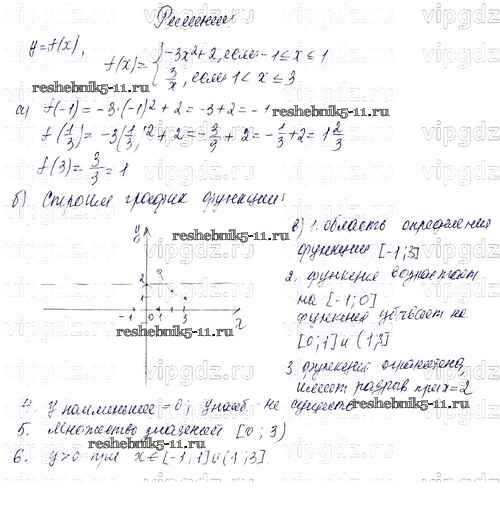 Решение
y=f(x), f(x)= { -3x²+2, если -1≤x≤1
3/x, если 1<x≤3
reshebnik5-11.ru
а) f(-1) = -3·(-1)² + 2 = -3+2 = -1
f(1/3) = -3(1/3)² + 2 = -3/9 + 2 = -1/3 + 2 = 1 2/3
f(3) = 3/3 = 1
б) Строим график функции:
reshebnik5-11.ru
y
2
1
-1 0 1 3
2
reshebnik5-11.ru
в) 1. область определения
функции [-1;3]
2. функция возрастает
на [-1;0]
функция убывает на
[0;1] и (1;3]
3. функция ограничена,
имеет разрыв при x=2
4. y наименьшее =0; y наиб. не существ.
reshebnik5-11.ru
5. Множество значений [0;3)
reshebnik5-11.ru
6. y>0 при x∈[-1;1]∪(1;3].
vipgdz.ru